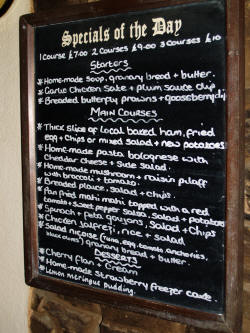 Specials of the Day
1 Course £7.00 2 Courses £9.00 3 Courses £10
Starters
* Home-made Soup, granary bread + butter.
* Garlic Chicken Sake + plum sauce dip
* Breaded butterfly prawns + gooseberry dip
MAIN COURSES
* Thick slice of local baked ham, fried
egg + Chips or mixed salad + new potatoes
* Home-made pasta bolognese with
Cheddar cheese + side salad.
* Home-made mushroom + raisin pilaff
with broccoli + tomato.
* Breaded plaice, salad + chips.
* Pan fried mahi mahi topped with a red
tomato + sweet pepper salsa, salad + potatoes
* Spinach + Feta goujons, Salad + Chips
* Chicken jalfrezi, rice + salad
* Salad niçoise (tuna, egg, tomato, anchovies,
black olives) granary bread + butter.
DESSERTS
* Cherry flan + cream
* Home-made strawberry freezer cake.
* Lemon meringue pudding.